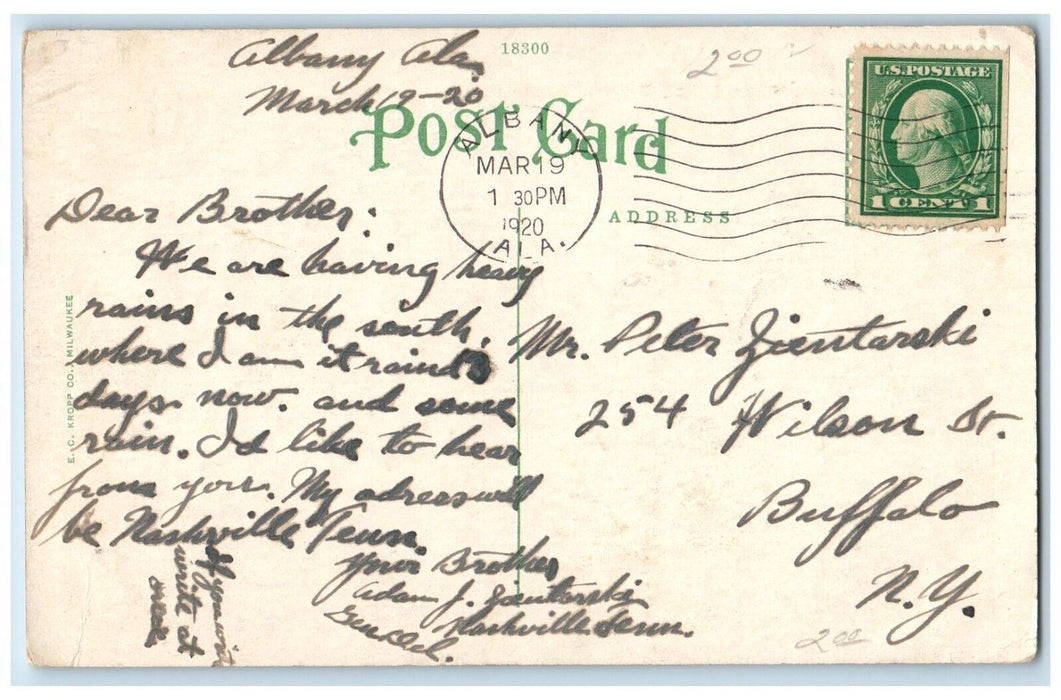 18300
2.00
Albany Ala.
March 19-20
Post Card
ALBANY
MAR 19
1 30PM
1920
ALA.
U.S. POSTAGE
1 CENT 1
ADDRESS
Dear Brother:
We are having heavy
rains in the south,
where I am it rained 3
days now. and some
rain. I'd like to hear
from you. My adress will
be Nashville Tenn.
Your Brother
Adam J. Zientarski
Gen. Del. Nashville Tenn.
If you write
write at
once
Mr. Peter Zientarski
254 Wilson St.
Buffalo
N.Y.
2.00
E. C. KROPP CO., MILWAUKEE